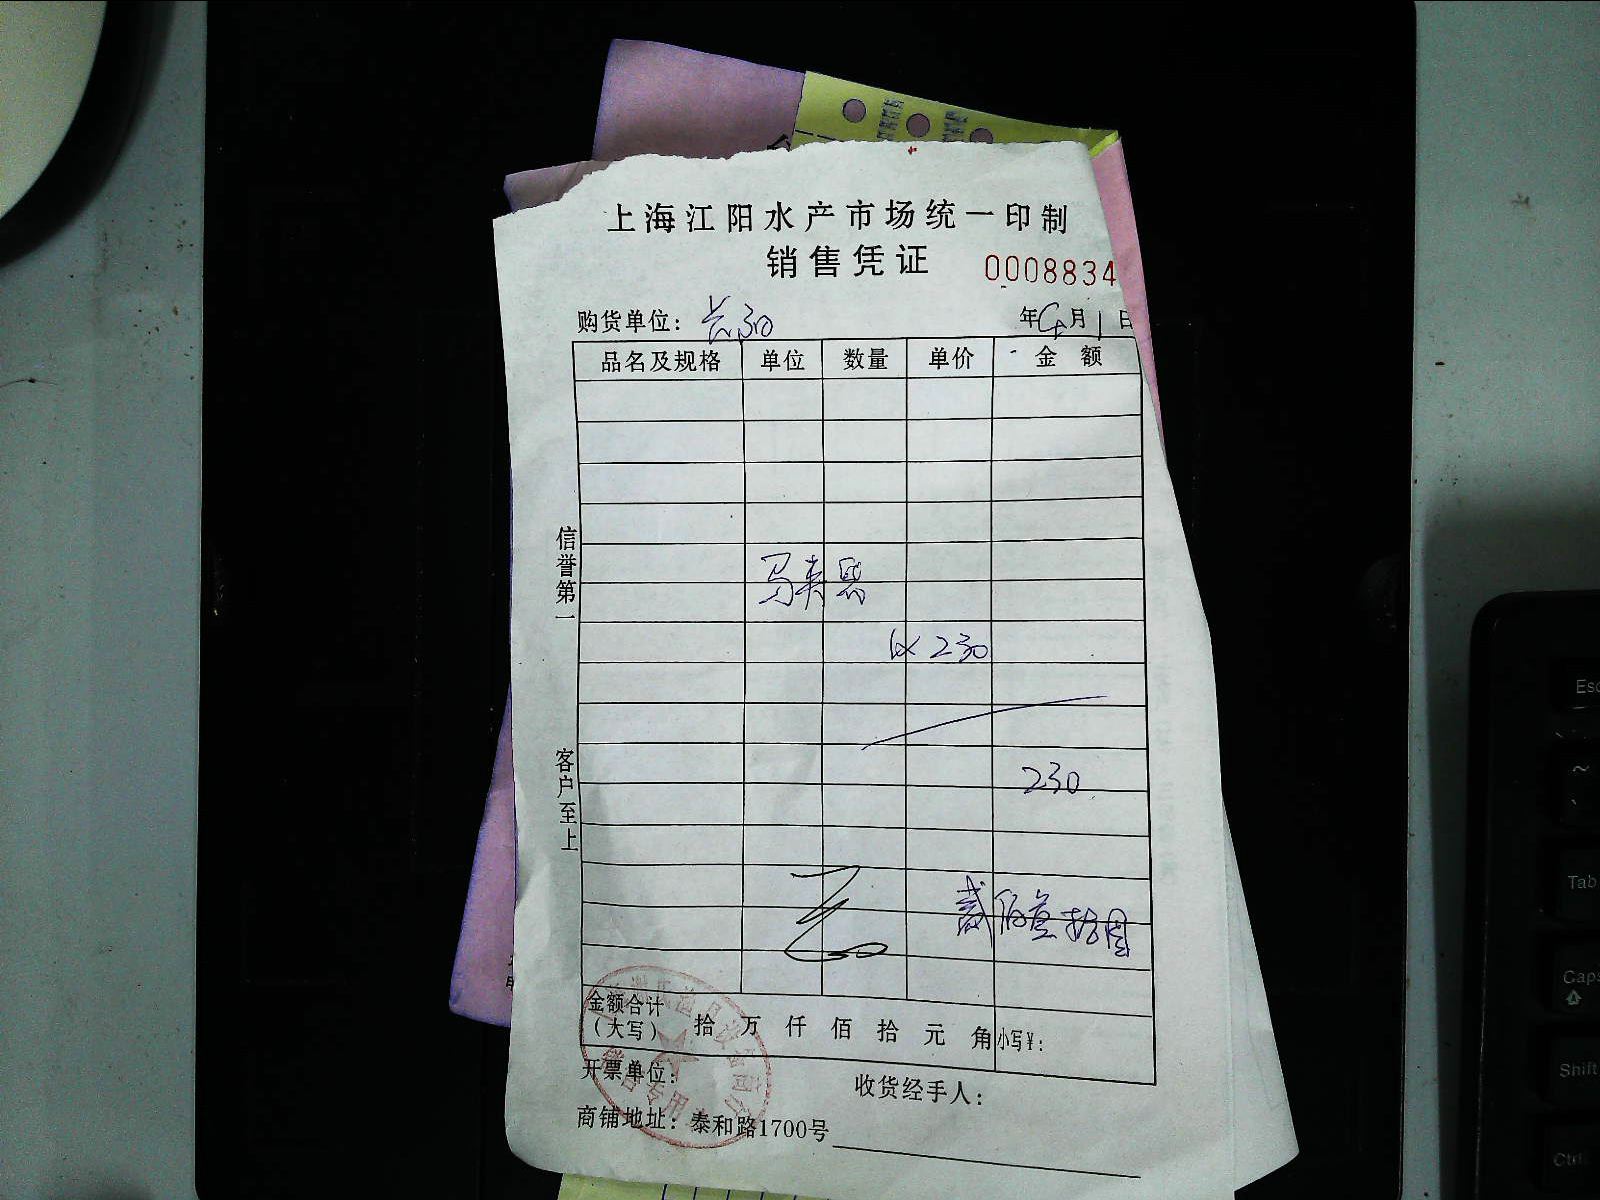 上海江阳水产市场统一印制
销售凭证 0008834
购货单位： 年 4月1日
品名及规格 单位 数量 单价 金额
信誉第一
马夹
230
客户至上
230
贰佰叁拾圆
金额合计（大写） 拾 万 仟 佰 拾 元 角 小写¥：
开票单位： 收货经手人：
商铺地址：泰和路1700号
专用
Esc
~
Tab
Caps
Shift
Ctrl